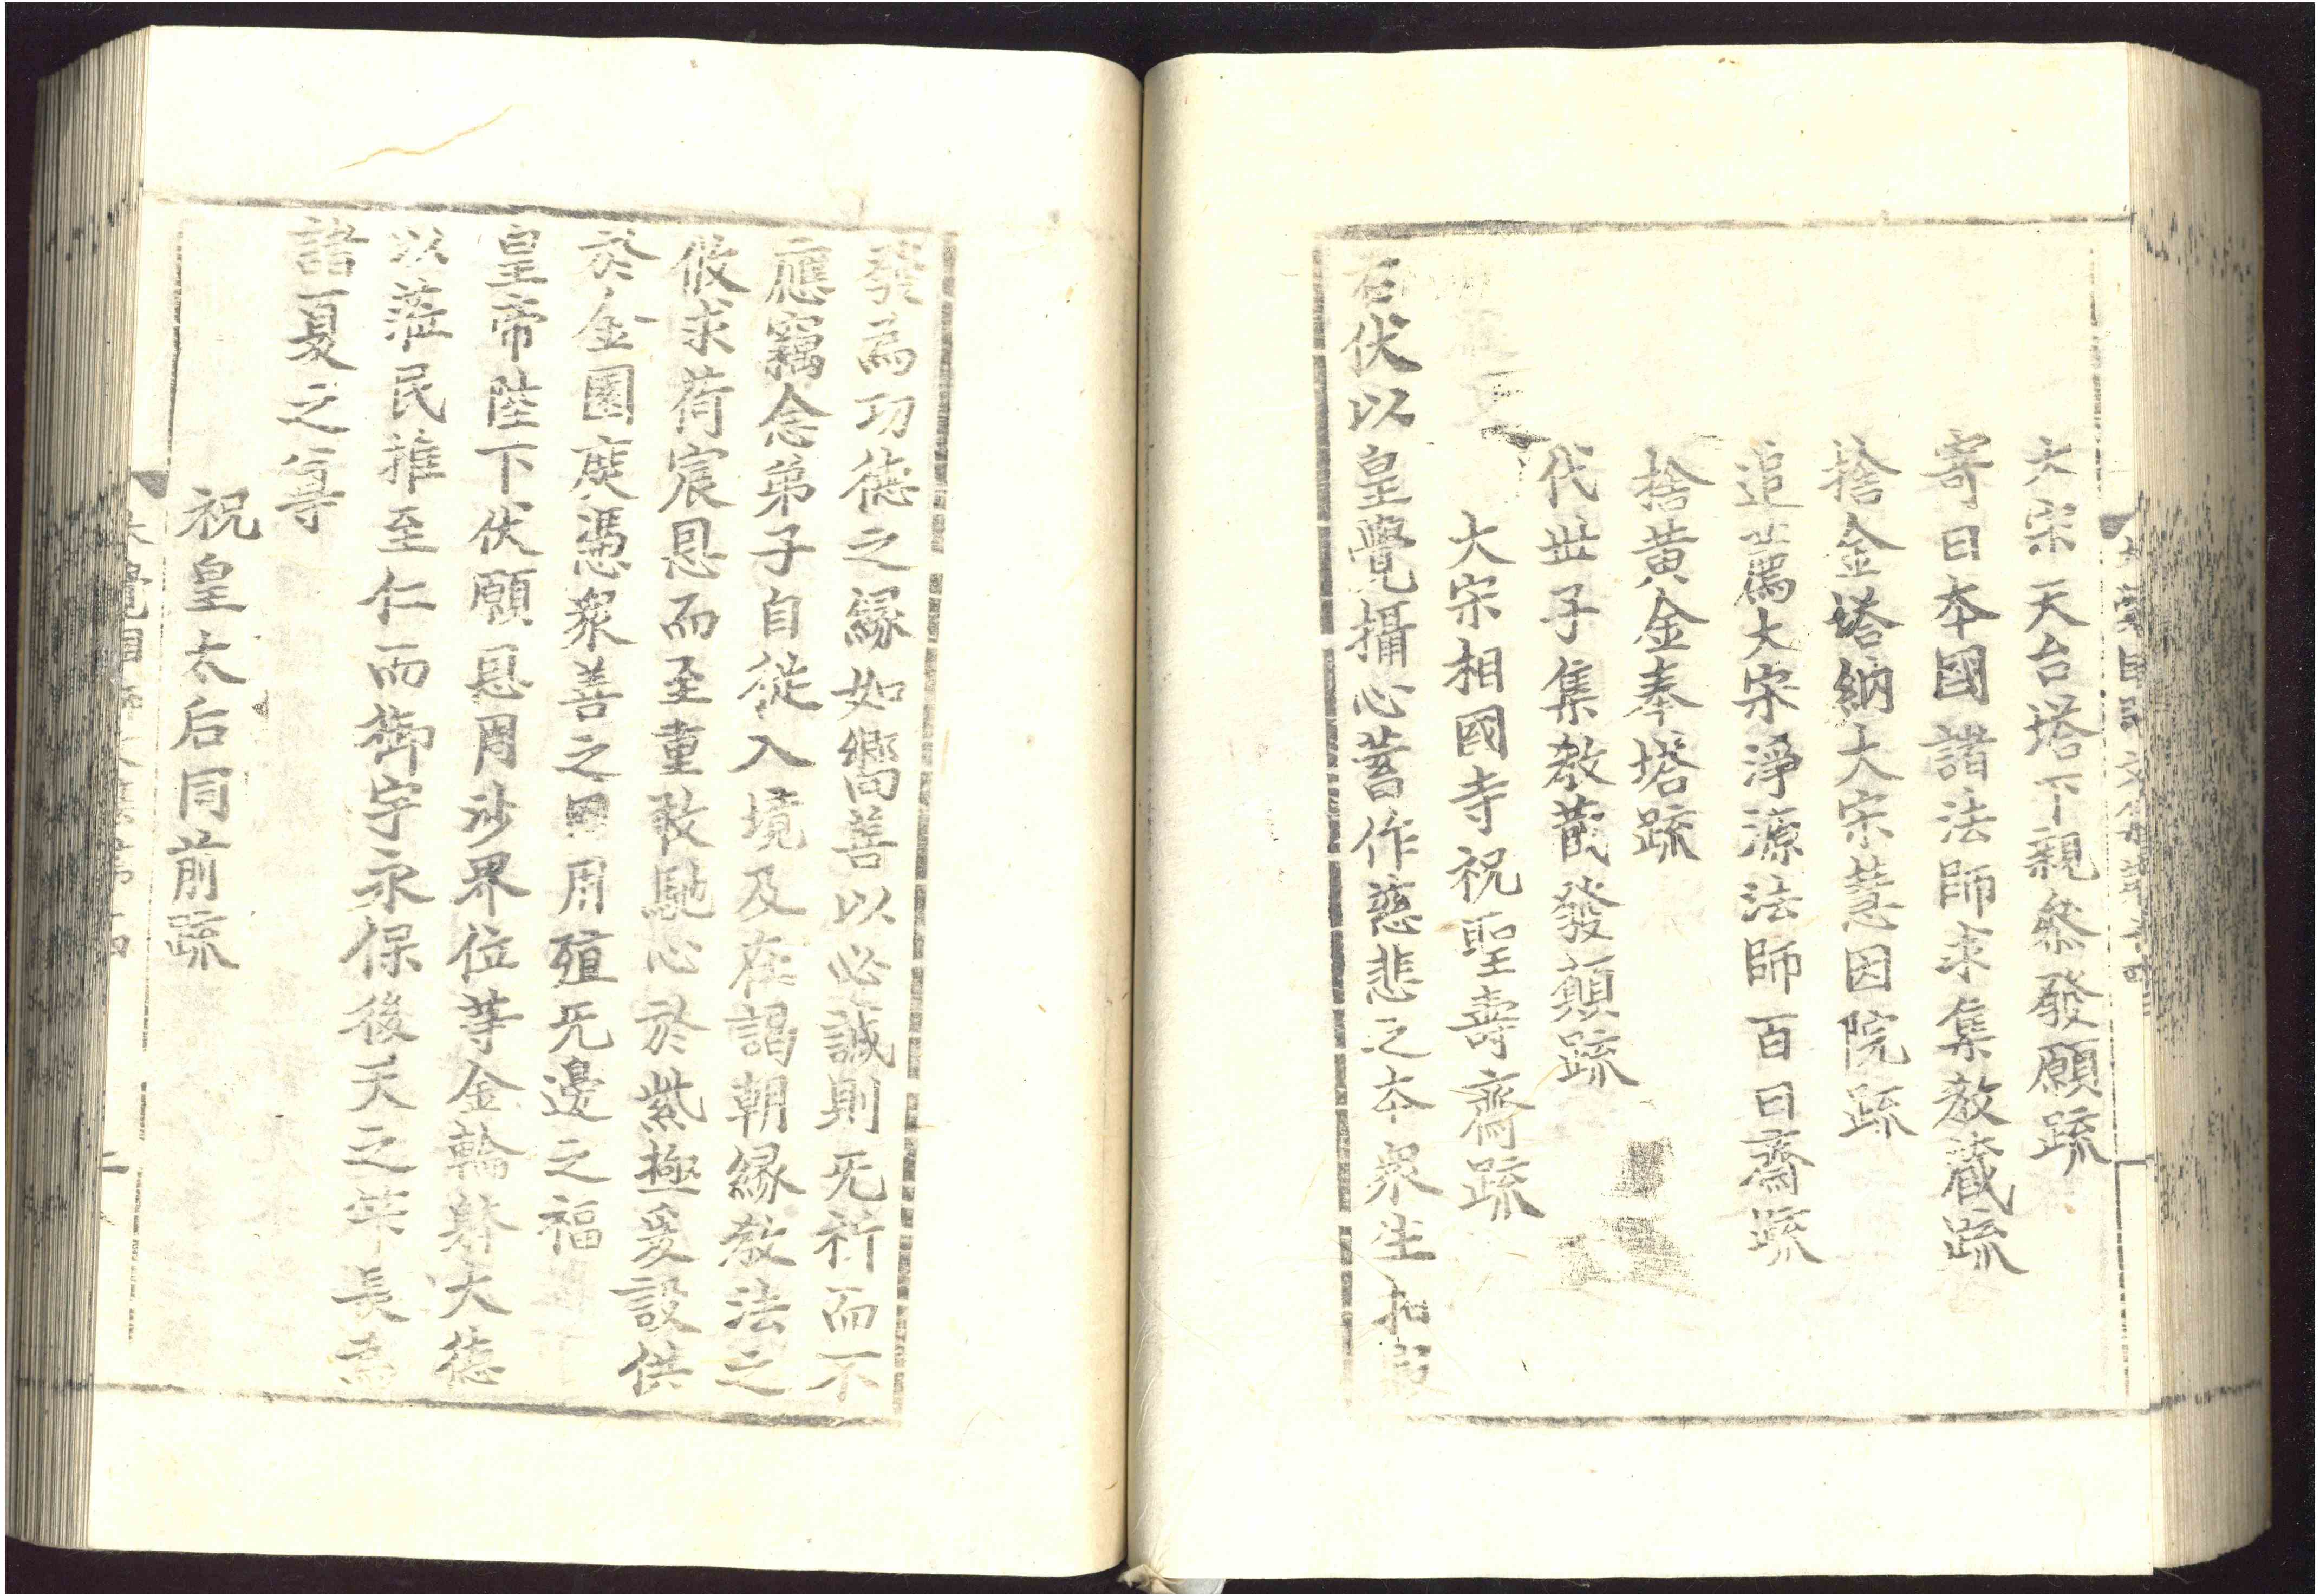 大宋天台塔下親叅發願疏
寄日本國諸法師求集教藏疏
捨金塔納大宋慧因院疏
追薦大宋淨源法師百日齋疏
捨黃金奉塔疏
代世子集教藏發願疏
大宋相國寺祝聖壽齋疏
右伏以皇覺攝心蓄作慈悲之本衆生扣
發爲功德之緣如嚮善以必誠則旡祈而不
應竊念弟子自從入境及在謁朝緣教法之
攸求荷宸恩而至重敢馳心於紫極爰設供
於金園庶憑衆善之因用殖旡邊之福
皇帝陛下伏願恩周沙界位等金輪躋大德
以莅民推至仁而御宇永保後天之筭長爲
諸夏之尊
祝皇太后同前疏